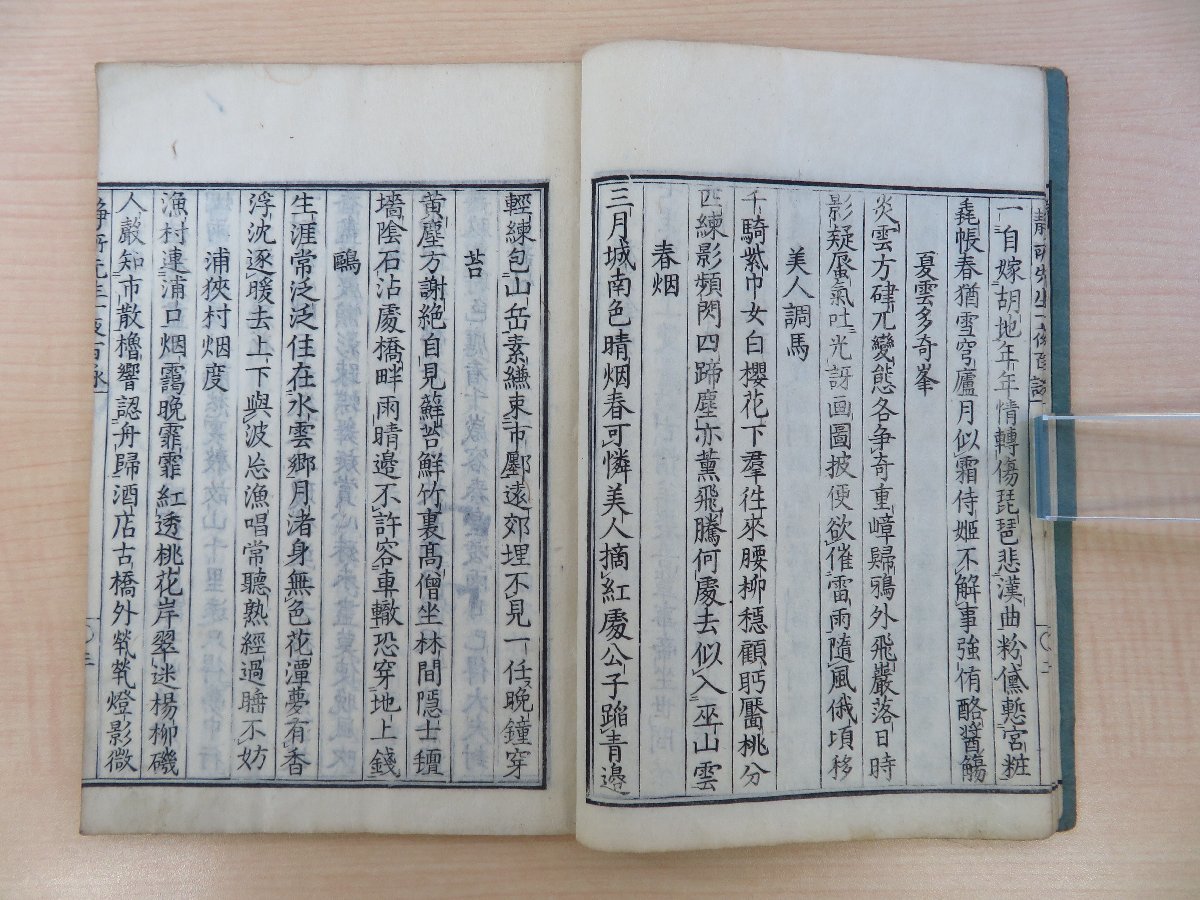 一自嫁胡地年年情轉傷琵琶悲漢曲粉黛慙宮粧
毳帳春猶雪穹廬月似霜侍姬不解事強侑酪醬觴
夏雲多奇峯
炎雲方硉兀變態各争奇重嶂歸鴉外飛巖落日時
影疑蜃氣吐光訝画圖披便欲催雷雨隨風俄頃移
美人調馬
千騎紫巾女白櫻花下羣往來腰柳穩顧眄靨桃分
匹練影頻閃四蹄塵亦薰飛騰何處去似入巫山雲
春烟
三月城南色晴烟春可憐美人摘紅處公子蹈青邊
輕練包山岳素縑束市鄽遠郊埋不見一任晚鐘穿
苔
黄塵方謝絕自見蘚苔鮮竹裏髙僧坐林間隠士氊
墻陰石沾處橋畔雨晴邉不許容車轍恐穿地上錢
鷗
生涯常泛泛住在水雲郷月渚身無色花潭夢有香
浮沈逐暖去上下與波忘漁唱常聽熟經過睡不妨
浦狹村烟度
漁村連浦口烟靄晚霏霏紅透桃花岸翠迷楊柳磯
人散知市散櫓響認舟歸酒店古橋外煢煢燈影微